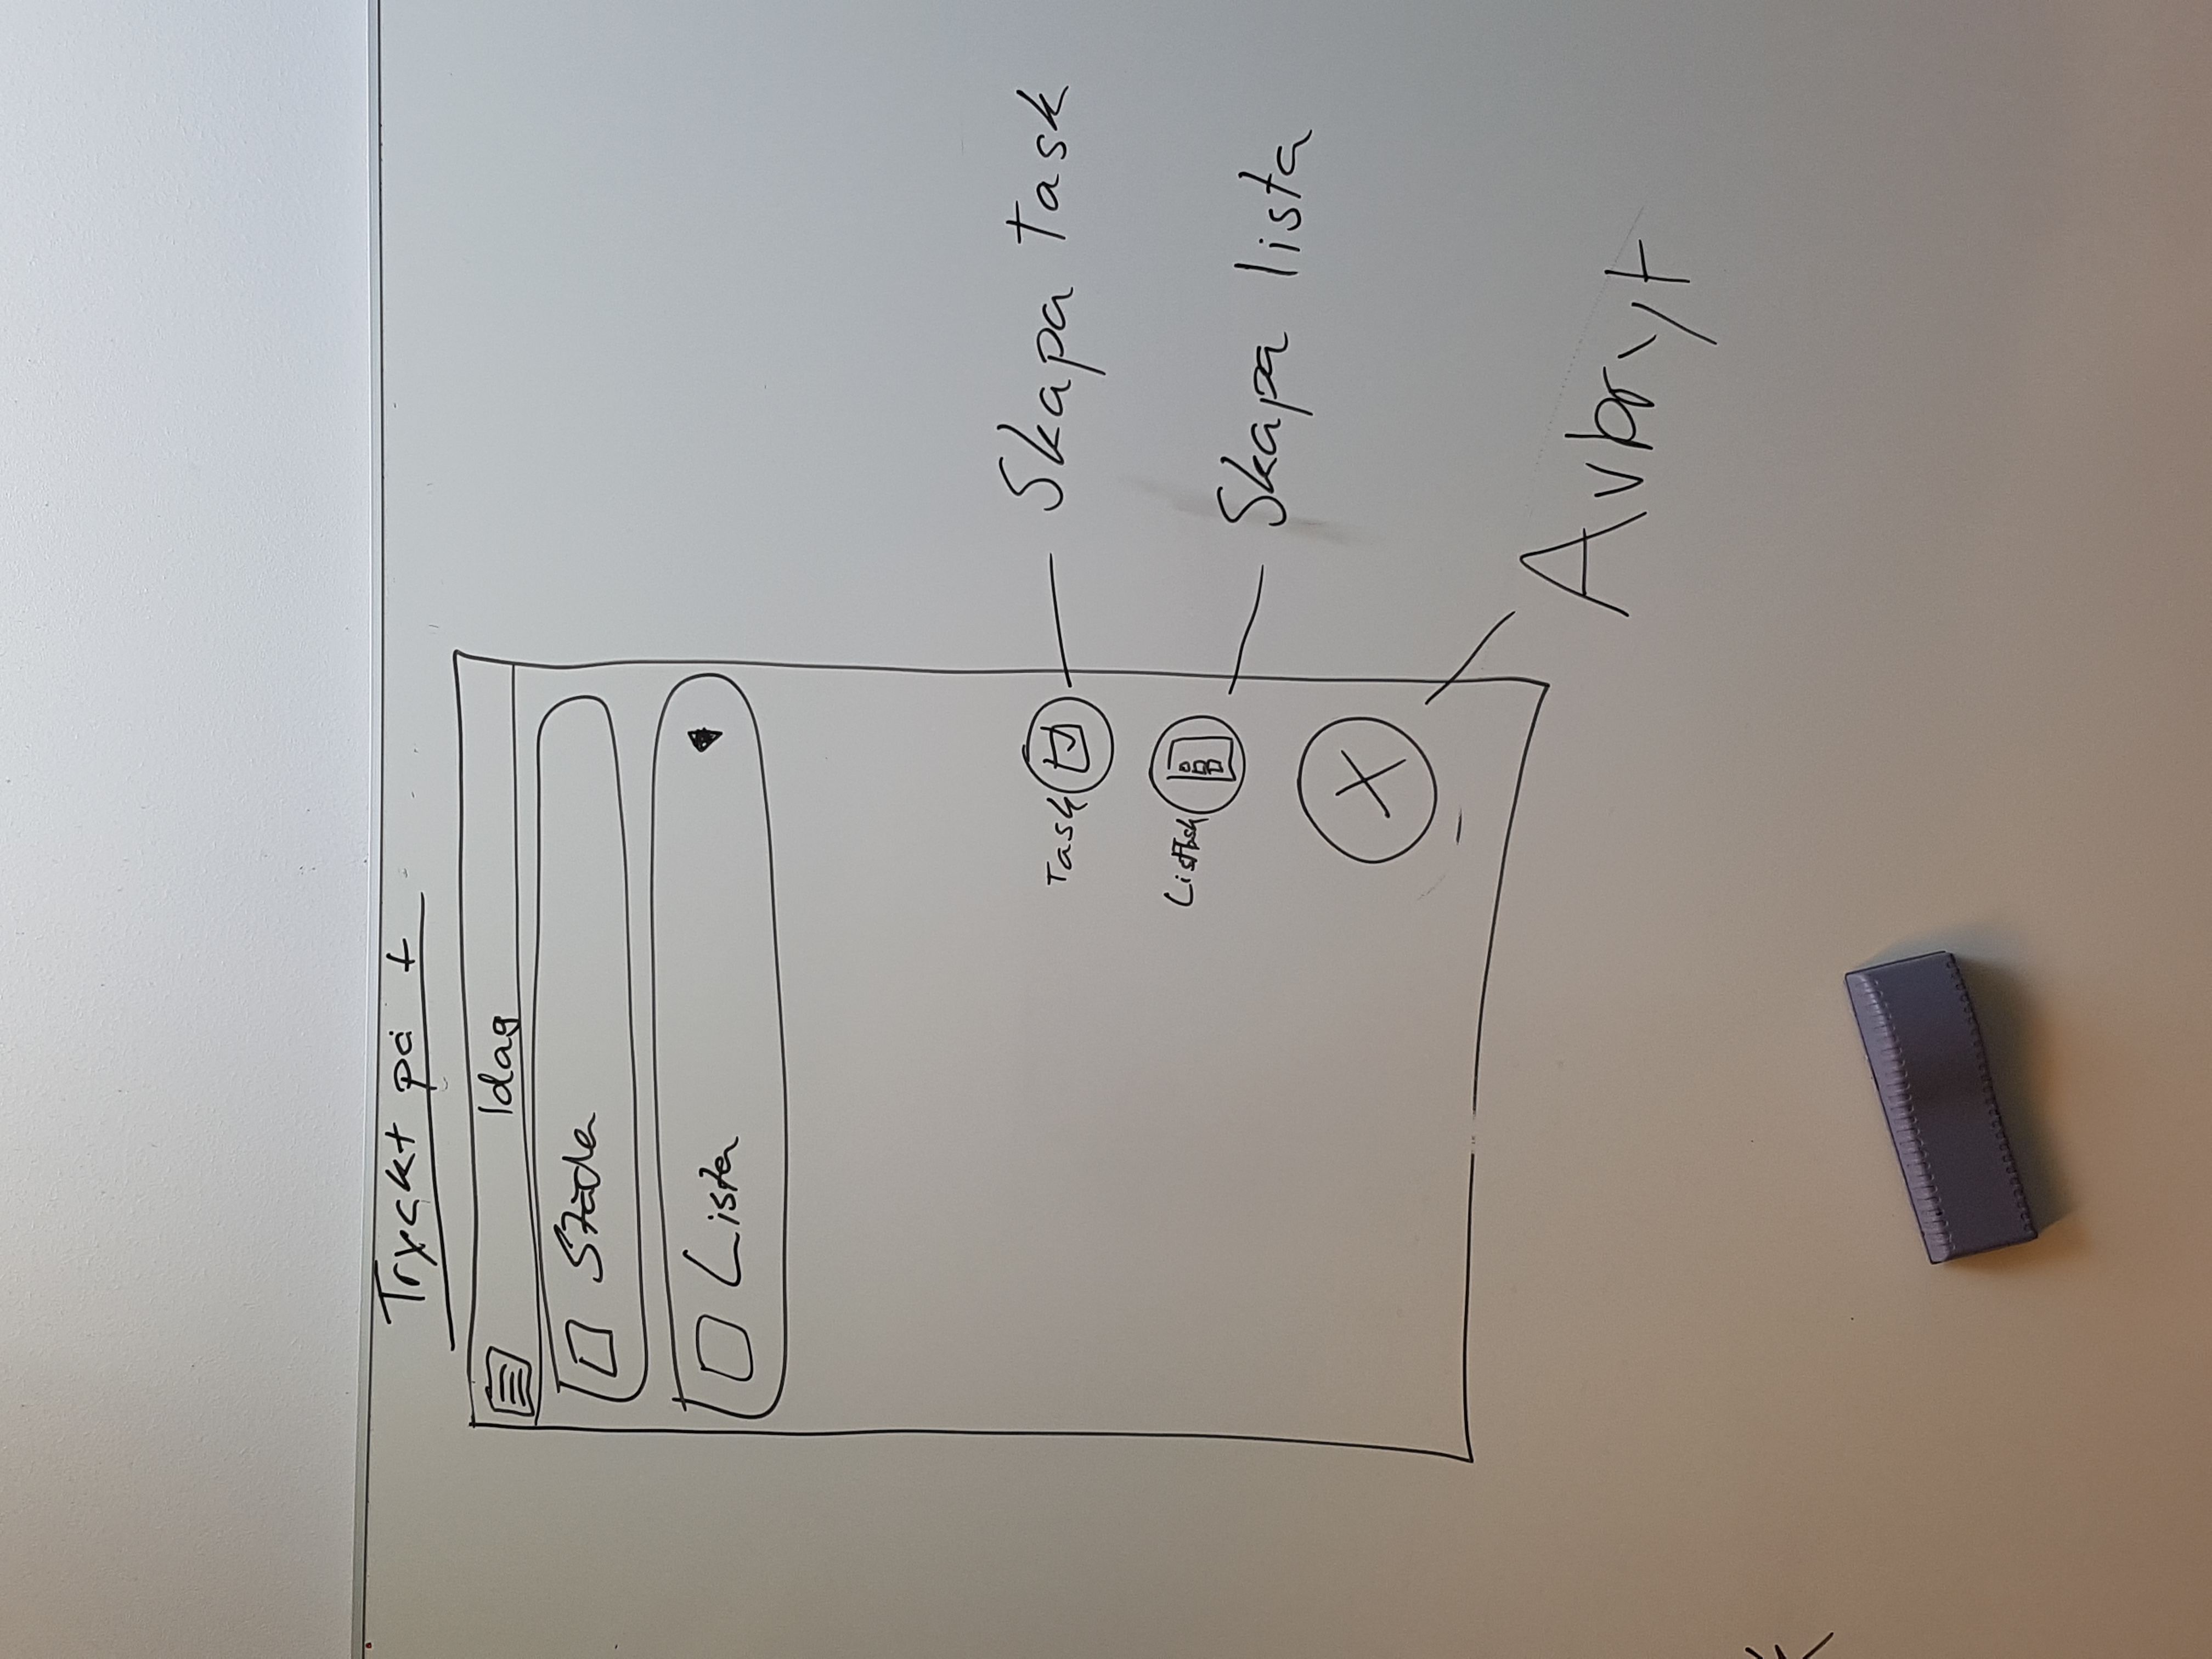 Tryckt på +
Idag
Städa
Lista
Task
Skapa task
Skapa lista
X
Avbryt